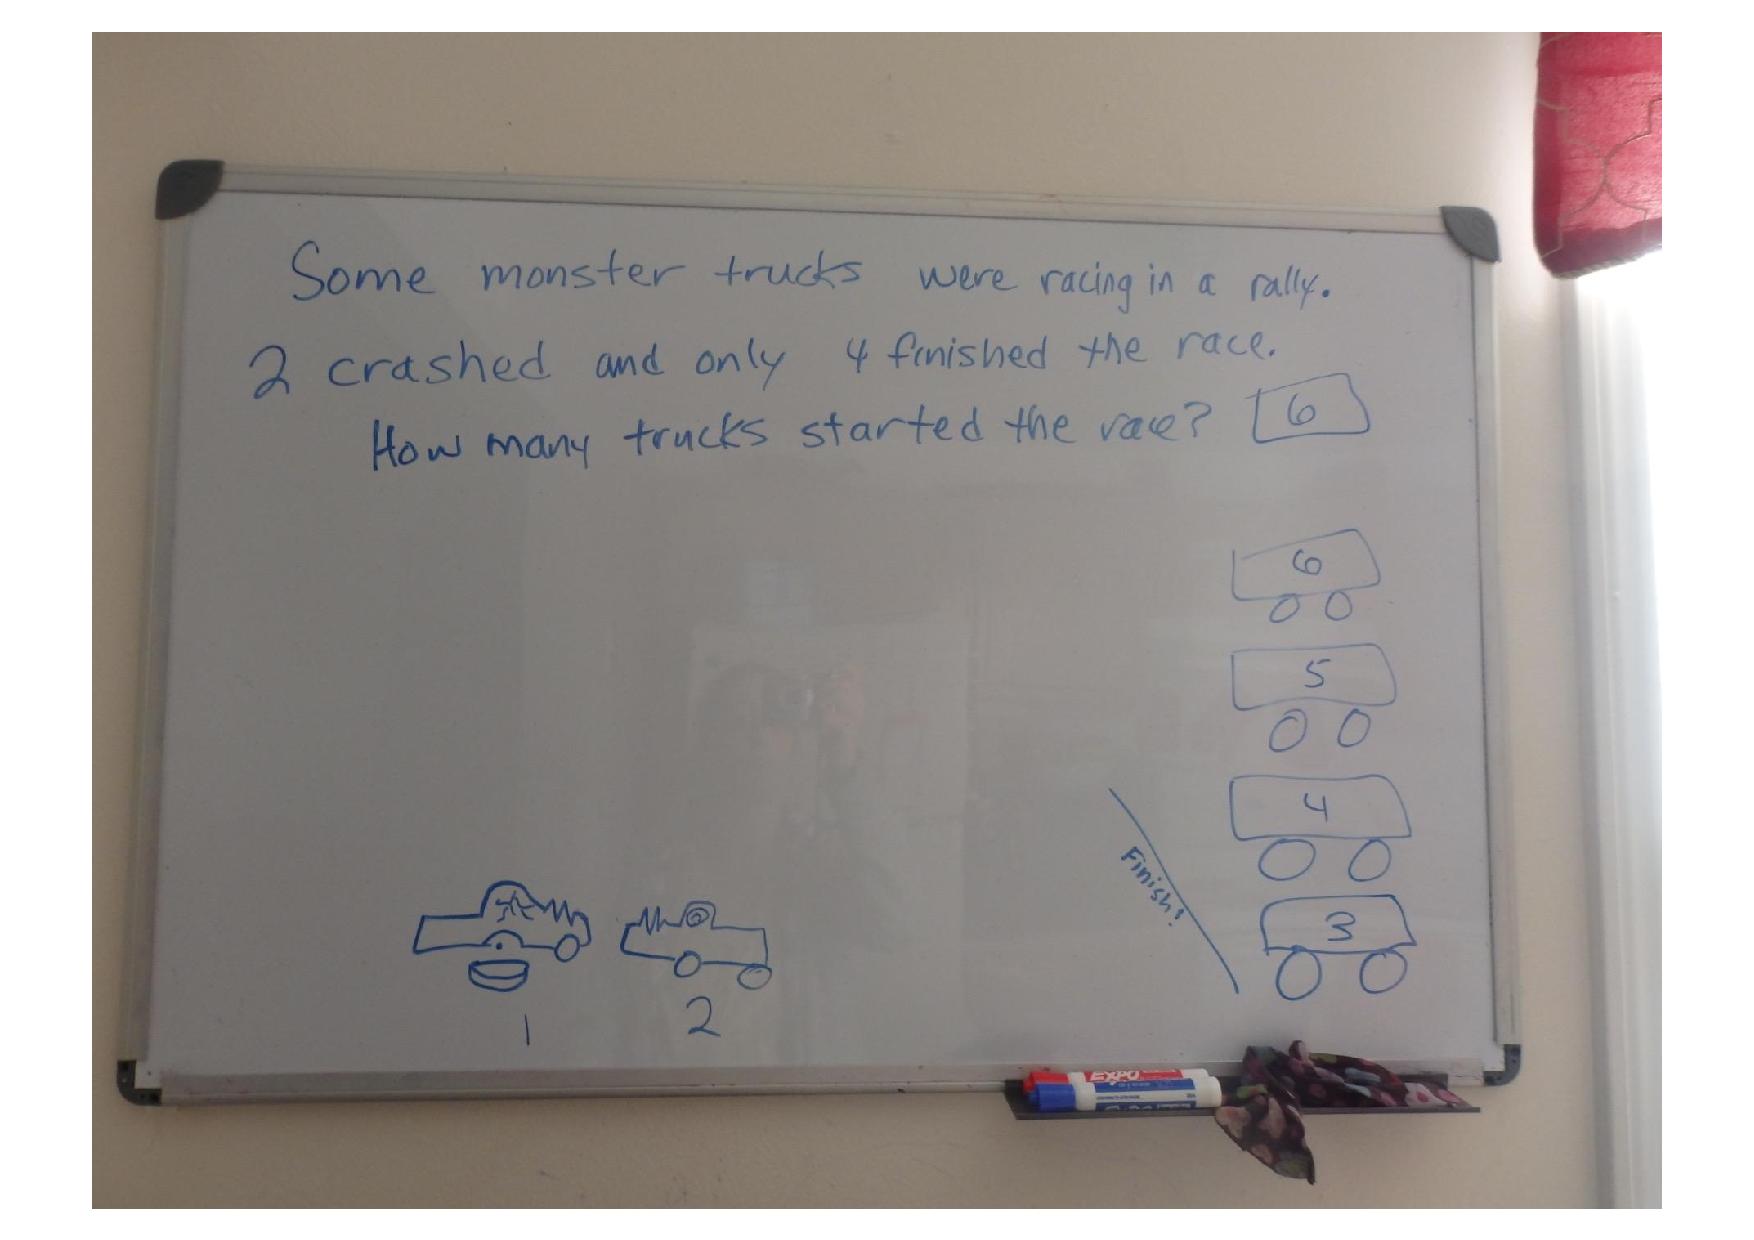 Some monster trucks were racing in a rally.
2 crashed and only 4 finished the race.
How many trucks started the race? 6
6
5
4
3
Finish!
1 2
EXPO